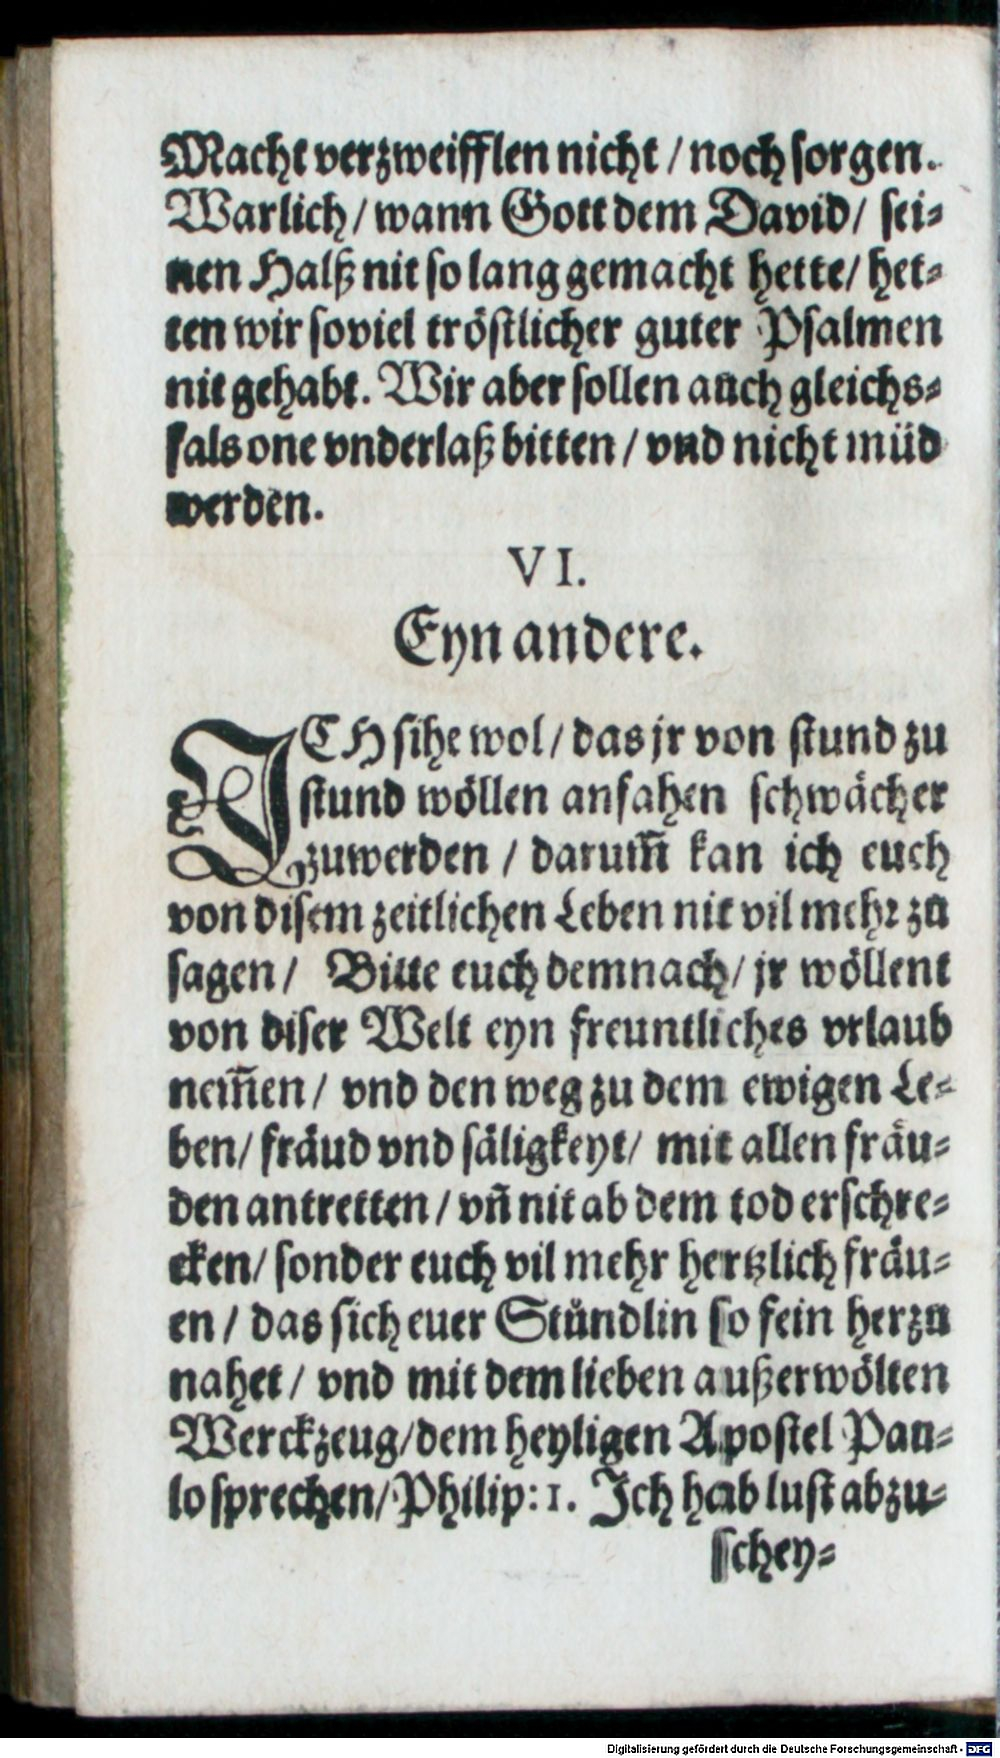 Macht verzweifflen nicht / noch sorgen.
Warlich / wann Gott dem David / sei⸗
nen Halß nit so lang gemacht hette / het⸗
ten wir soviel tröstlicher guter Psalmen
nit gehabt. Wir aber sollen auch gleichs⸗
fals one vnderlaß bitten / vnd nicht müd
werden.
VI.
Eyn andere.
ICH sihe wol / das jr von stund zu
stund wöllen anfahen schwächer
zuwerden / darum̃ kan ich euch
von disem zeitlichen Leben nit vil mehr zu
sagen / Bitte euch demnach / jr wöllent
von diser Welt eyn freuntliches vrlaub
nem̃en / vnd den weg zu dem ewigen Le⸗
ben / fräud vnd säligkeyt / mit allen fräu⸗
den antretten / vñ nit ab dem tod erschre⸗
cken / sonder euch vil mehr hertzlich fräu⸗
en / das sich euer Stündlin so fein herzu
nahet / vnd mit dem lieben außerwölten
Werckzeug / dem heyligen Apostel Pau⸗
lo sprechen / Philip: 1. Ich hab lust abzu⸗
schey⸗
Digitalisierung gefördert durch die Deutsche Forschungsgemeinschaft - DFG